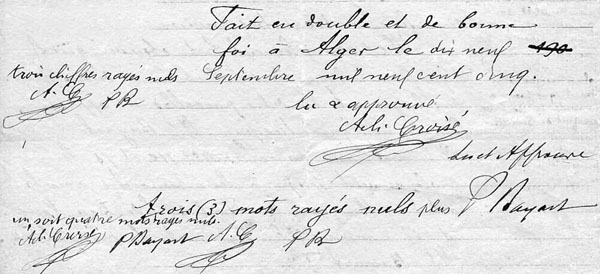 Fait en double et de bonne
foi à Alger le dix neuf 190
trois chiffres rayés nuls Septembre mil neuf cent cinq.
A. C. P B lu & approuvé
Ach. Croisé
Lu et Approuvé
trois (3) mots rayés nuls plus P Bayart
un soit quatre mots rayés nuls.
Ach Croisé P Bayart A. C. P B